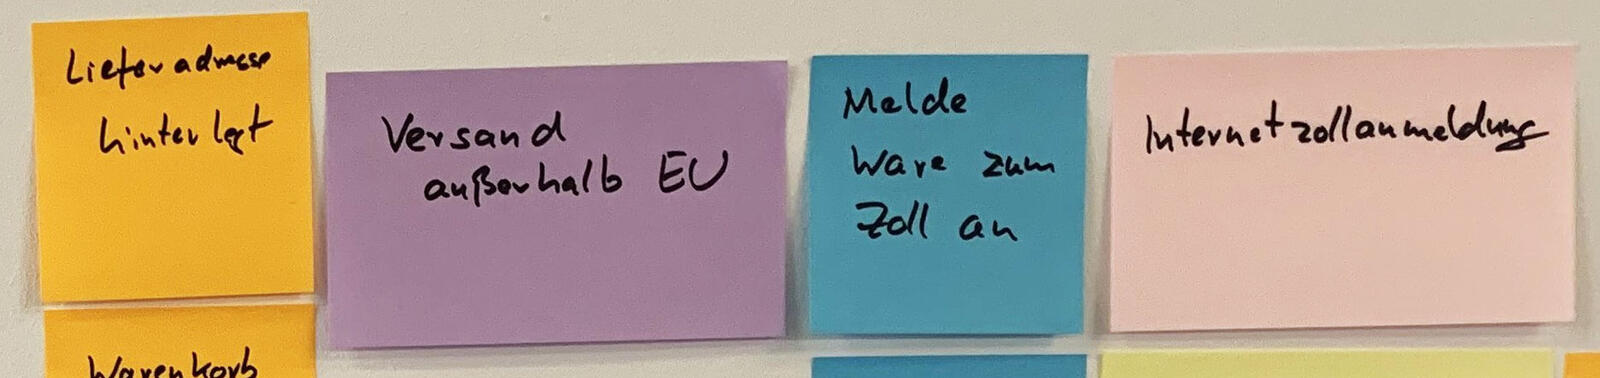 Lieferadresse
hinterlegt
Versand
außerhalb EU
Melde
Ware zum
Zoll an
Internetzollanmeldung
Warenkorb